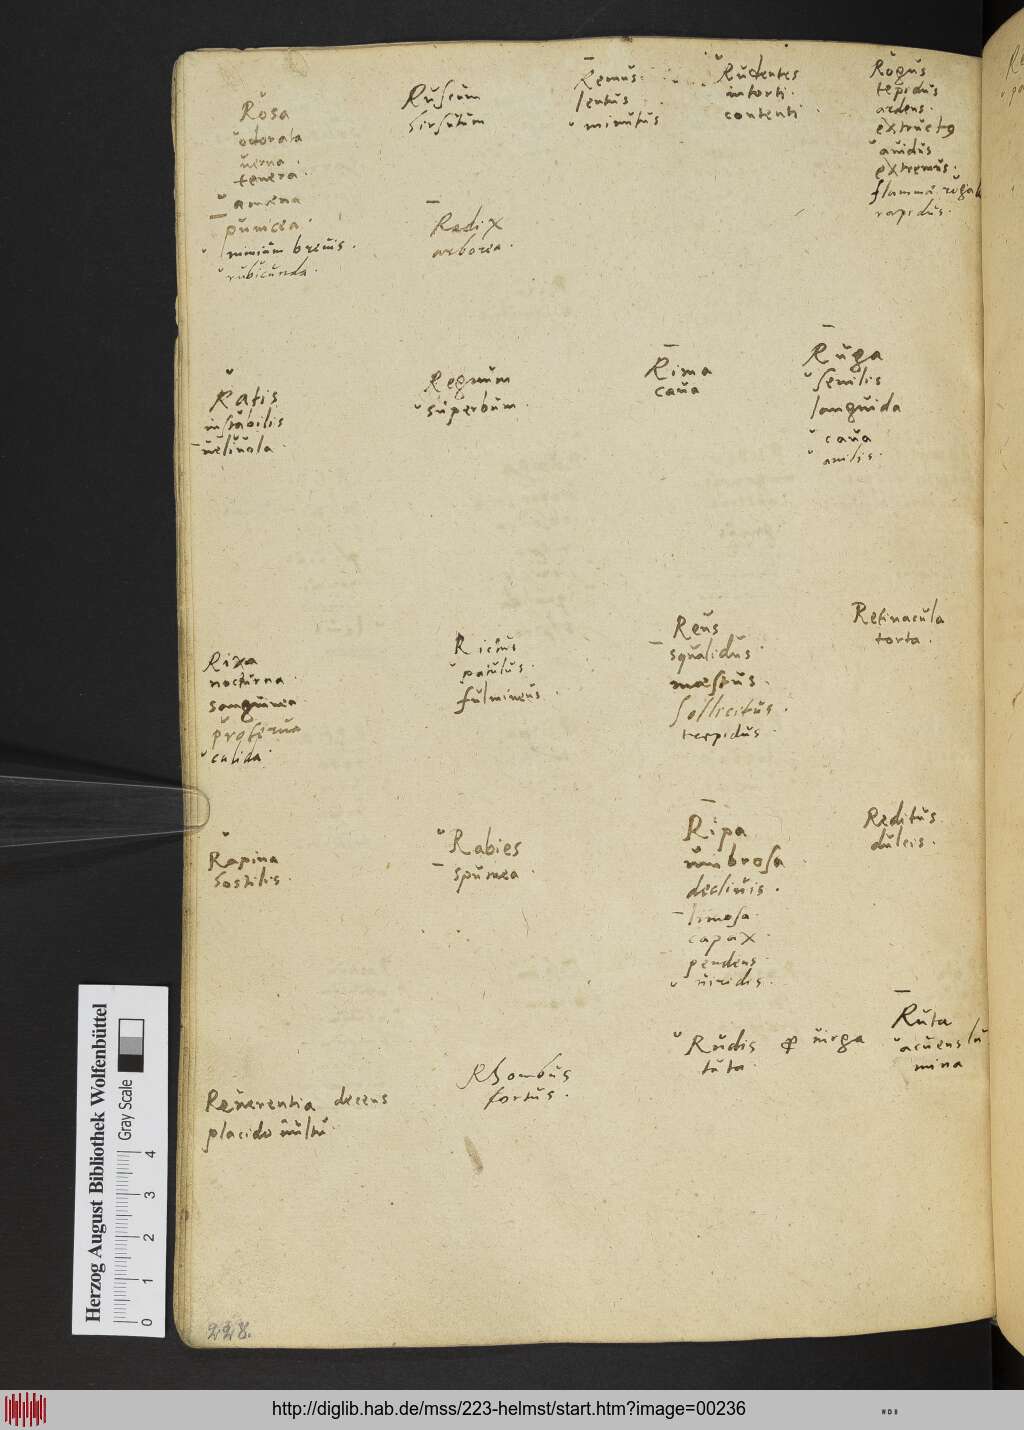 Rosa
odorata
uerna.
tenera.
amœna
punicea.
nimium breuis.
rubicunda.
Ruscum
hirsutum
Remus
lentus
minutus
Rudentes
intorti.
contenti.
Rogus
tepidus
ardens.
extructus
auidus
extremus.
flamma
rapidus.
Radix
arborea.
Ratis
instabilis
ueliuola.
Regnum
superbum.
Rima
caua
Ruga
senilis
languida
caua
anilis.
Rixa
nocturna.
sanguinea
proterua
calida.
Rictus
patulus.
fulmineus.
Reus
squalidus.
mæstus.
sollicitus.
trepidus.
Retinacula
torta.
Rapina
hostilis.
Rabies
spumea.
Ripa
umbrosa.
decliuis.
limosa.
capax.
pendens.
uiridis.
Reditus
dulcis.
Reuerentia decens
placido uultu.
Rhombus
tortus.
Rudis uirga
tuta.
Ruta
acuens lu
mina
228.
Herzog August Bibliothek Wolfenbüttel
Gray Scale
0 1 2 3 4
http://diglib.hab.de/mss/223-helmst/start.htm?image=00236